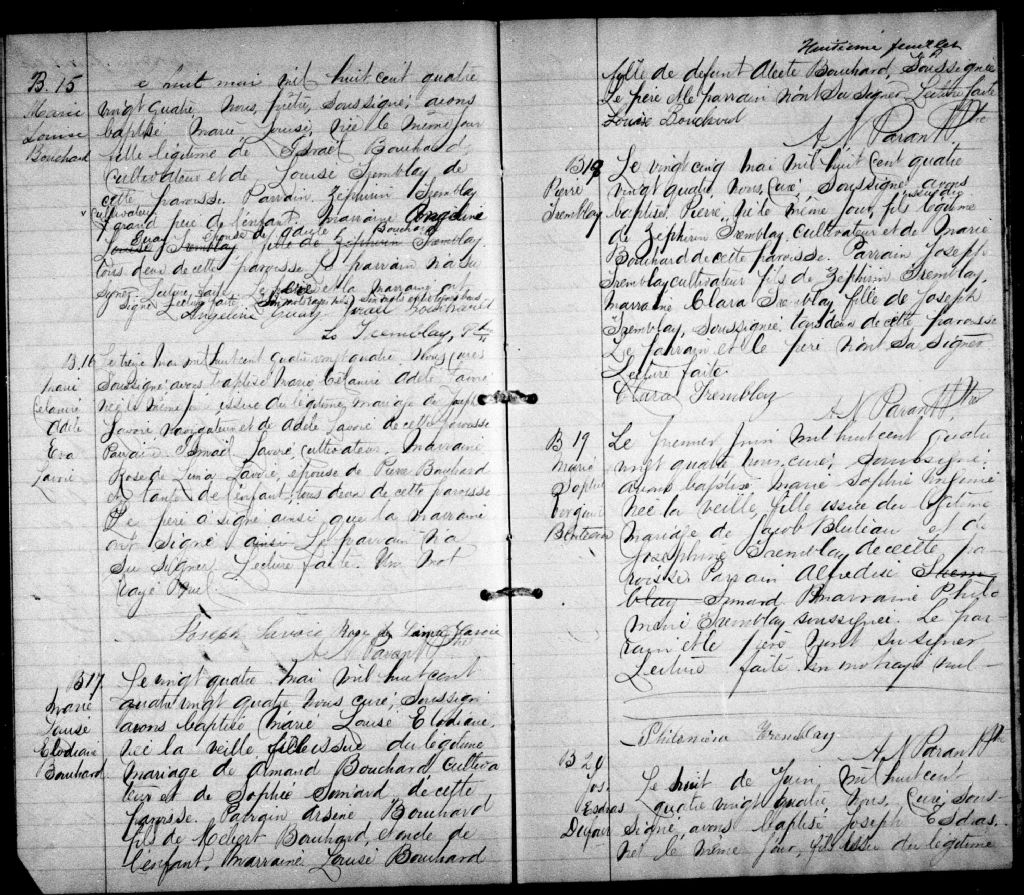 B. 15
Marie
Louise
Bouchard
e huit mai mil huit cent quatre
vingt quatre, nous, prêtre, soussigné, avons
baptisé Marie, Louise, née le même jour
fille légitime de Israël Bouchard
Cultivateur et de Louise Tremblay de
cette paroisse. Parrain Zéphirin Tremblay
cultivateur
grand père de l'enfant, marraine Angéline
Guay
Louise Tremblay fille de Zéphirin Tremblay
tous deux de cette paroisse. Le parrain n'a su
signer. Lecture faite. Le père et la marraine ont
signé Lecture faite
Angéline Guay Israël Bouchard
Ls Tremblay, Ptre
B. 16
Marie
Célanire
Adèle
Eva
Savoie
Le treize mai mil huit cent quatre vingt quatre nous curé
soussigné avons baptisé Marie Célanire Adèle
née le même jour issue du légitime mariage de Joseph
Savoie, navigateur et de Adèle Savoie de cette paroisse
Parrain Ismaël Savoie cultivateur. Marraine
Rose de Lima Savoie, épouse de Pierre Bouchard
et tante de l'enfant, tous deux de cette paroisse
Le père a signé ainsi que la marraine
ont signé ainsi Le parrain n'a
su signer Lecture faite. Un mot
rayé nul.
Joseph Savoie Rose de Lima Savoie
A N Parant Ptre
B17
Marie
Louise
Elodiane
Bouchard
Le vingt quatre mai mil huit cent
quatre vingt quatre nous curé, soussigné
avons baptisé Marie Louise Elodiane,
née la veille fille issue du légitime
mariage de Armand Bouchard Cultiva
teur et de Sophie Simard de cette
paroisse. Parrain Arsène Bouchard
fils de Hébert Bouchard, oncle de
l'enfant, Marraine Louise Bouchard
Huitième feuillet
fille de défunt Alexte Bouchard, Soussignée
Le père et le parrain n'ont su signer Lecture faite
Louise Bouchard
A N Parant Ptre
B18
Pierre
Tremblay
Le vingt cinq mai mil huit cent quatre
vingt quatre, nous, curé, soussigné, avons
issu du
baptisé, Pierre, né le même jour, fils légitime
de Zéphirin Tremblay cultivateur et de Marie
Bouchard de cette paroisse. Parrain Joseph
Tremblay cultivateur fils de Zéphirin Tremblay,
marraine Clara Tremblay fille de Joseph
Tremblay, soussignée tous deux de cette paroisse
Le parrain et le père n'ont su signer
Lecture faite
Clara Tremblay
A N Parant Ptre
B 19
Marie
Sophie
Le premier juin mil huit cent quatre
vingt quatre nous, curé, soussigné;
avons baptisé Marie Sophie
née la veille, fille issue du légitime
mariage de Jacob Bluteau et de
Joséphine Tremblay de cette pa-
roisse Parrain Alfred Trem
blay Simard Marraine Philo
mène Tremblay soussignée. Le par-
rain et le père n'ont su signer
Lecture faite un mot rayé nul —
Philomène Tremblay
A N Parant Ptre
B 20
Jos.
Esdras
Dufour
Le huit de Juin, mil huit cent
quatre vingt quatre, nous, Curé, sous-
signé, avons baptisé Joseph Esdras,
né le même jour, fils issu du légitime